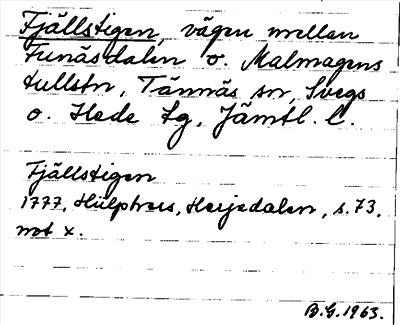 Fjällstigen, vägen mellan
Funäsdalen o. Malmagens
tullstn, Tännäs sn, Svegs
o. Hede tg, Jämtl. l.
Fjällstigen
1777, Hülphers, Herjedalen, s. 73.
not x.
B.G. 1963.